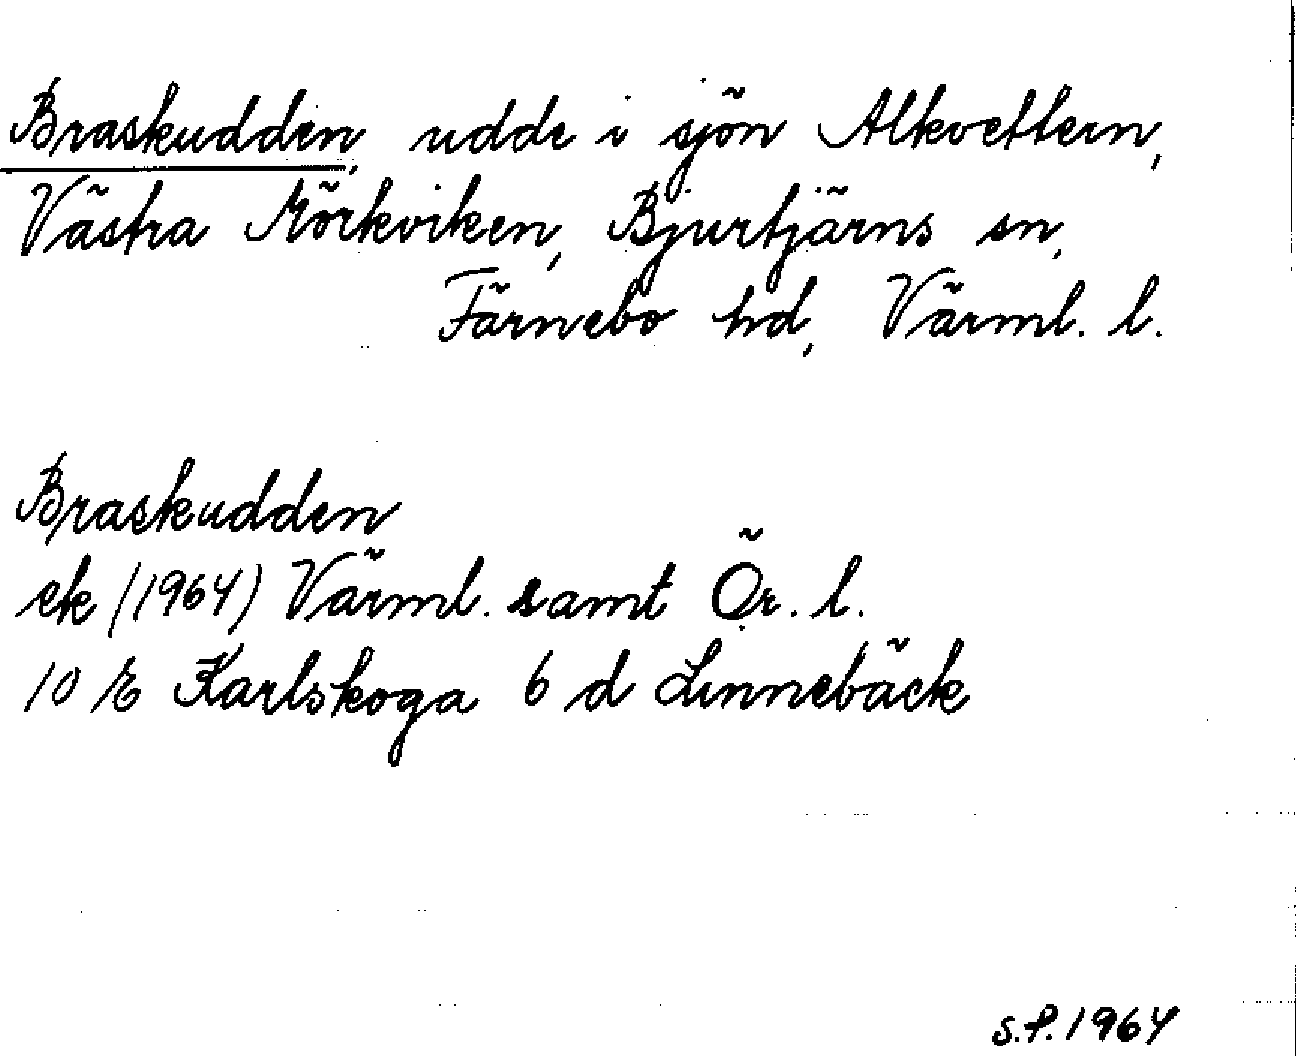 Braskudden, udde i sjön Alkvettern,
Västra Mörkviken, Bjurtjärns sn,
Färnebo hd, Värml. l.
Braskudden
ek (1964) Värml. samt Ör. l.
10 E Karlskoga 6 d Linnebäck
S.P. 1964